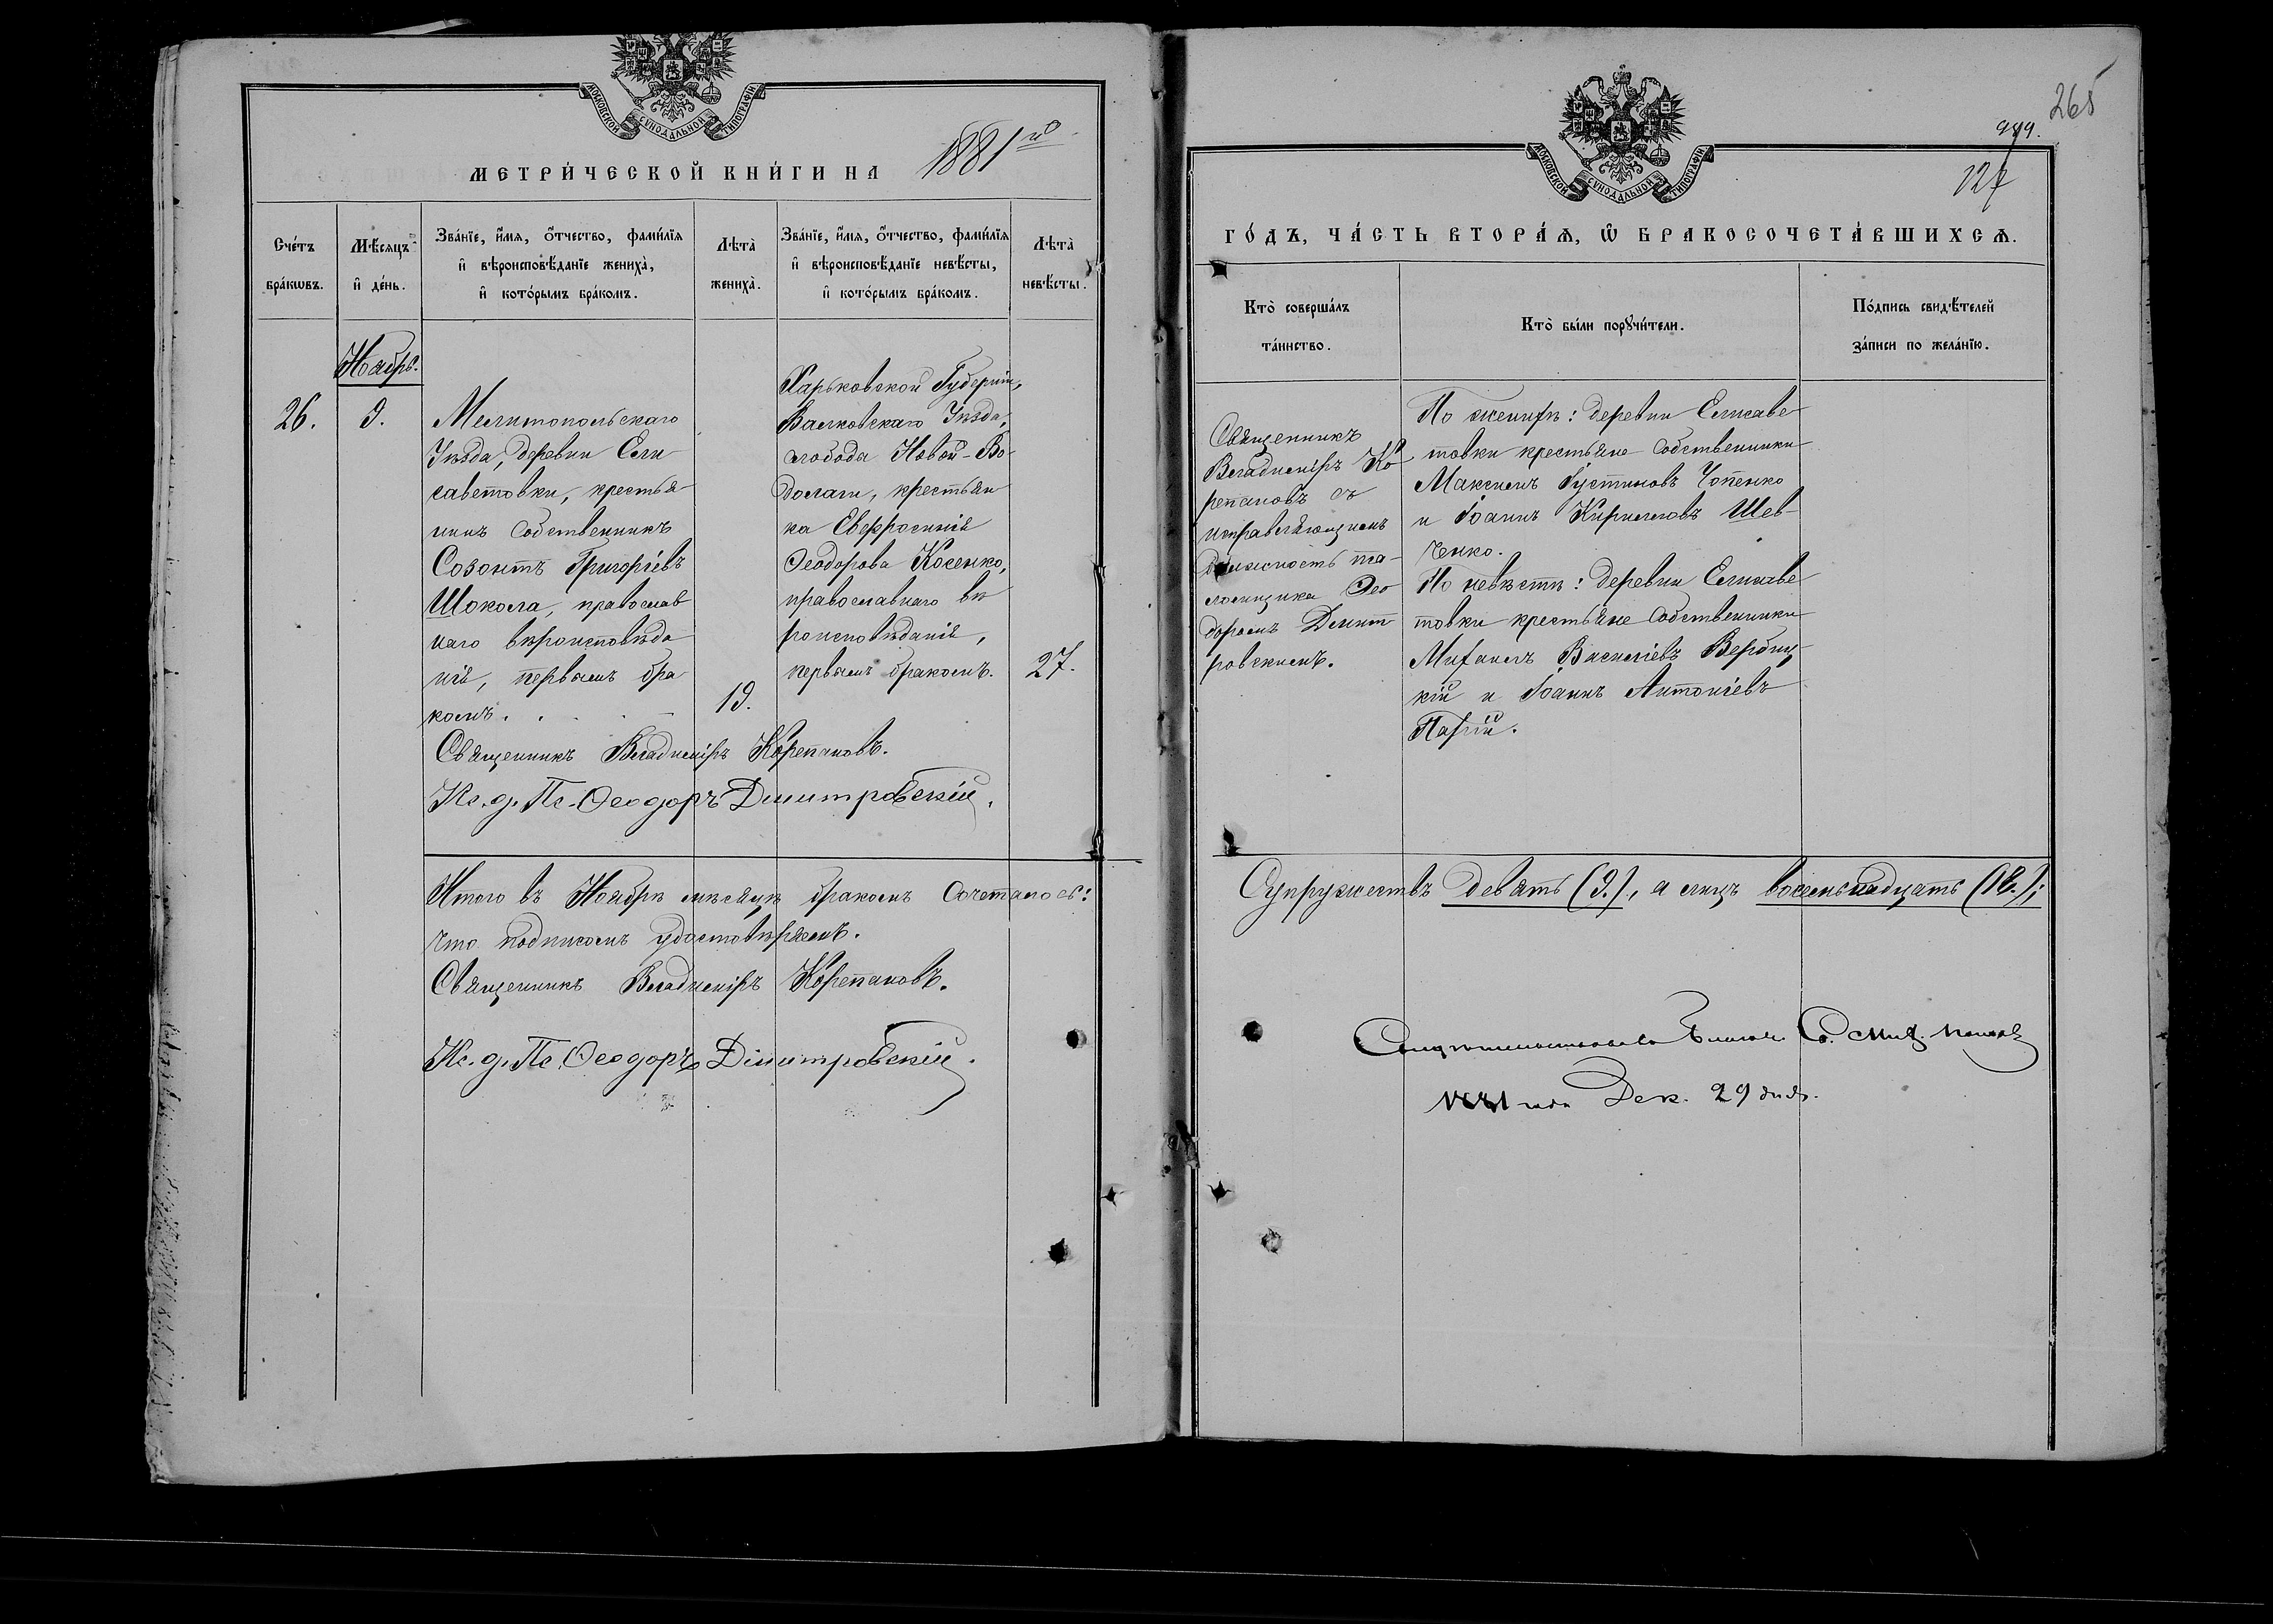 МОСКОВСКОЙ СѴНОДАЛЬНОЙ ТИПОГРАФІИ
МЕТРИ́ЧЕСКОЙ КНИ́ГИ НА 1881й
Сче́тъ бра́кѡвъ.
Мѣ́сяцъ и҆ де́нь.
Зва́нїе, и҆́мя, ѻ҆́тчество, фами́лїя и҆ вѣроисповѣ́данїе жениха̀, и҆ кото́рымъ бра́комъ.
Лѣта̀ жениха̀.
Зва́нїе, и҆́мя, ѻ҆́тчество, фами́лїя и҆ вѣроисповѣ́данїе невѣ́сты, и҆ кото́рымъ бра́комъ.
Лѣта̀ невѣ́сты.
Ноябрь.
26.
9.
Мелитопольскаго
Уѣзда, деревни Ели
саветовки, крестья
нинъ собственникъ
Созонтъ Григоріевъ
Шокола, православ
наго вѣроисповѣда
нія, первымъ бра
комъ.
19.
Харьковской Губерніи,
Валковскаго Уѣзда,
слобода Новой-Во
долаги, крестьян
ка Евфросинія
Ѳеодорова Косенко,
православнаго вѣ
роисповѣданія,
первымъ бракомъ.
27.
Священникъ Владиміръ Корепановъ.
Ис. д. Пс. Ѳеодоръ Димитровскій.
Итого въ Ноябрѣ мѣсяцѣ бракомъ сочеталось:
что подписомъ удостовѣряемъ.
Священникъ Владиміръ Корепановъ.
Ис. д. Пс. Ѳеодоръ Димитровскій.
265
999.
127
МОСКОВСКОЙ СѴНОДАЛЬНОЙ ТИПОГРАФІИ
ГО́ДЪ, ЧА́СТЬ ВТОРА́Я, Ѡ҆ БРАКОСОЧЕТА́ВШИХСЯ.
Кто̀ соверша́лъ та́инство.
Кто̀ бы́ли порꙋчи́тели.
По́дпись свидѣ́телей за́писи по жела́нїю.
Священникъ
Владиміръ Ко
репановъ съ
исправляющимъ
должность пса-
ломщика Ѳео
доромъ Димит
ровскимъ.
По женихѣ: деревни Елисаве
товки крестьяне собственники
Максимъ Іустиновъ Чопенко
и Іоаннъ Кирилловъ Шев-
ченко.
По невѣстѣ: деревни Елисаве
товки крестьяне собственники
Михаилъ Василіевъ Вербиц
кій и Іоаннъ Антоніевъ
Палій.
Супружествъ девять (9.), а лицъ восемьнадцать (18.);
1881 года Дек. 29 дня.